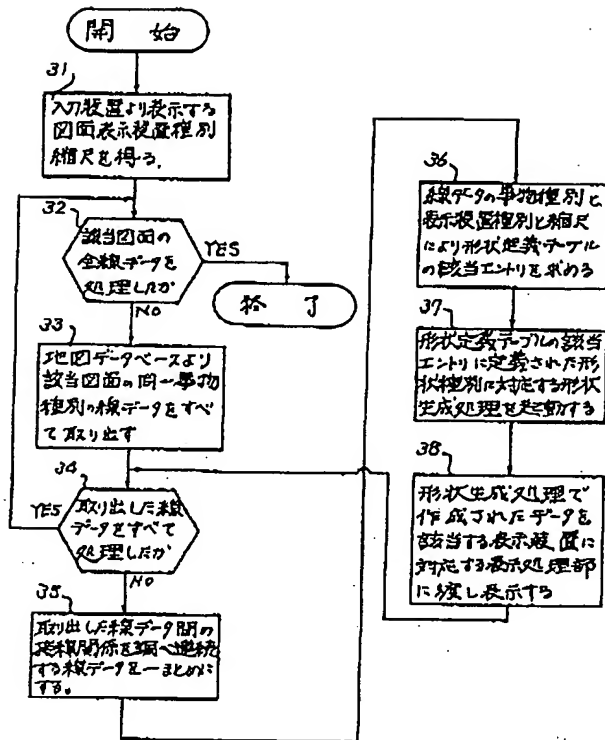 開 始
31
入力装置より表示する
図面表示装置種別
縮尺を得る.
32
該当図面の
全線データを
処理したか
YES
終 了
NO
33
地図データベースより
該当図面の同一事物
種別の線データをすべ
て取り出す
34
YES
取り出した線
データをすべて
処理したか
NO
35
取り出した線データ間の
接線関係を調べ連続
する線データを一まとめに
する。
36
線データの事物種別と
表示装置種別と縮尺
により形状定義テーブル
の該当エントリを求める
37
形状定義テーブルの該当
エントリに定義された形
状種別に対応する形状
生成処理を起動する
38
形状生成処理で
作成されたデータを
該当する表示装置に
対応する表示処理部
に渡し表示する